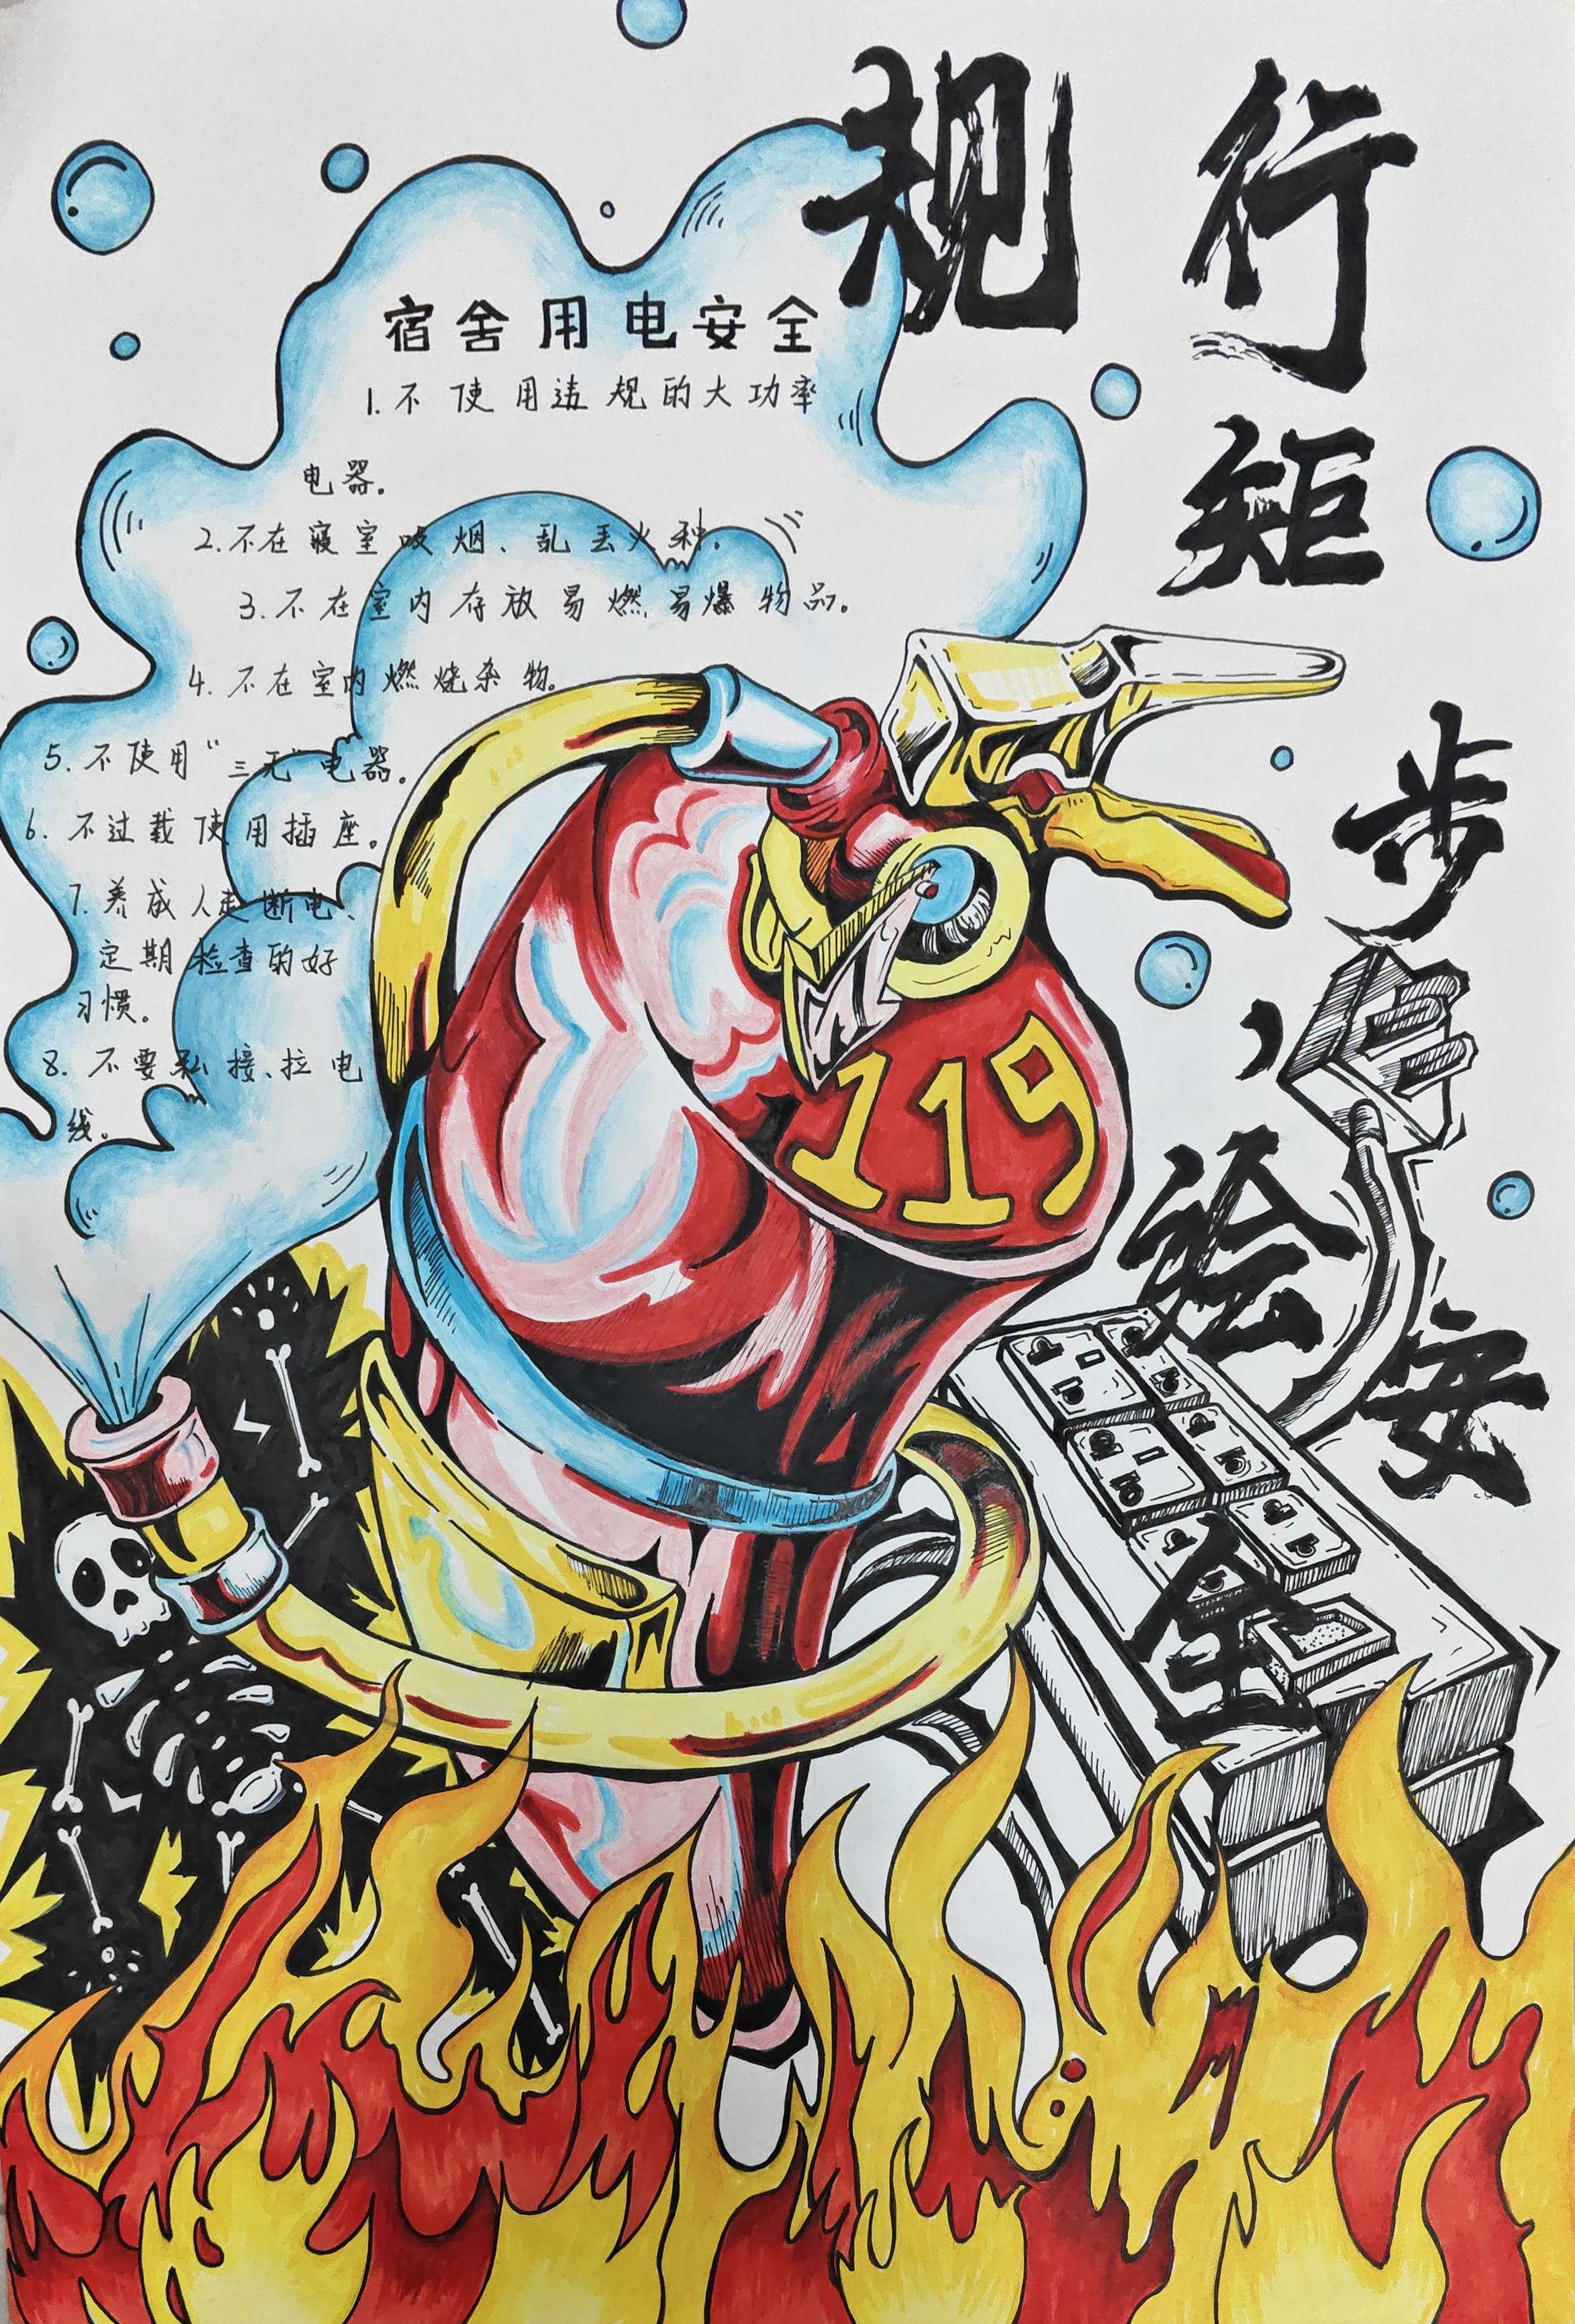 规行矩步，绘安全
宿舍用电安全
1.不使用违规的大功率
电器。
2.不在寝室吸烟、乱丢火种。
3.不在室内存放易燃易爆物品。
4.不在室内燃烧杂物。
5.不使用“三无”电器。
6.不过载使用插座。
7.养成人走断电、
定期检查的好
习惯。
8.不要私接、拉电
线。
119